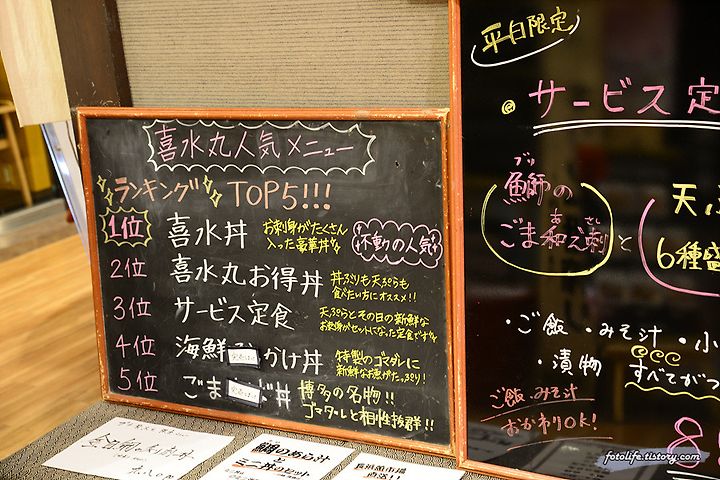 喜水丸人気メニュー
ランキング TOP5!!!
1位 喜水丼 お刺身がたくさん
入った豪華丼!!
不動の人気
2位 喜水丸お得丼 丼ぶりも天ぷらも
食べたい方にオススメ!!
3位 サービス定食 天ぷらとその日の新鮮な
お刺身がセットになった定食です!!
4位 海鮮 かけ丼 特製のゴマダレに
新鮮なお魚がたっぷり!
5位 ごま 丼 博多の名物!!
ゴマダレと相性抜群!!
平日限定
サービス定
ブリ
鰤の
あ さし
ごま和え刺 と
天ぷ
6種盛
・ご飯 ・みそ汁 ・小
・漬物 すべてがつ
ご飯・みそ汁
おかわりOK!
8
のあら汁
と
ミニ丼のセット
長浜魚市場
直送!!
fotolife.tistory.com